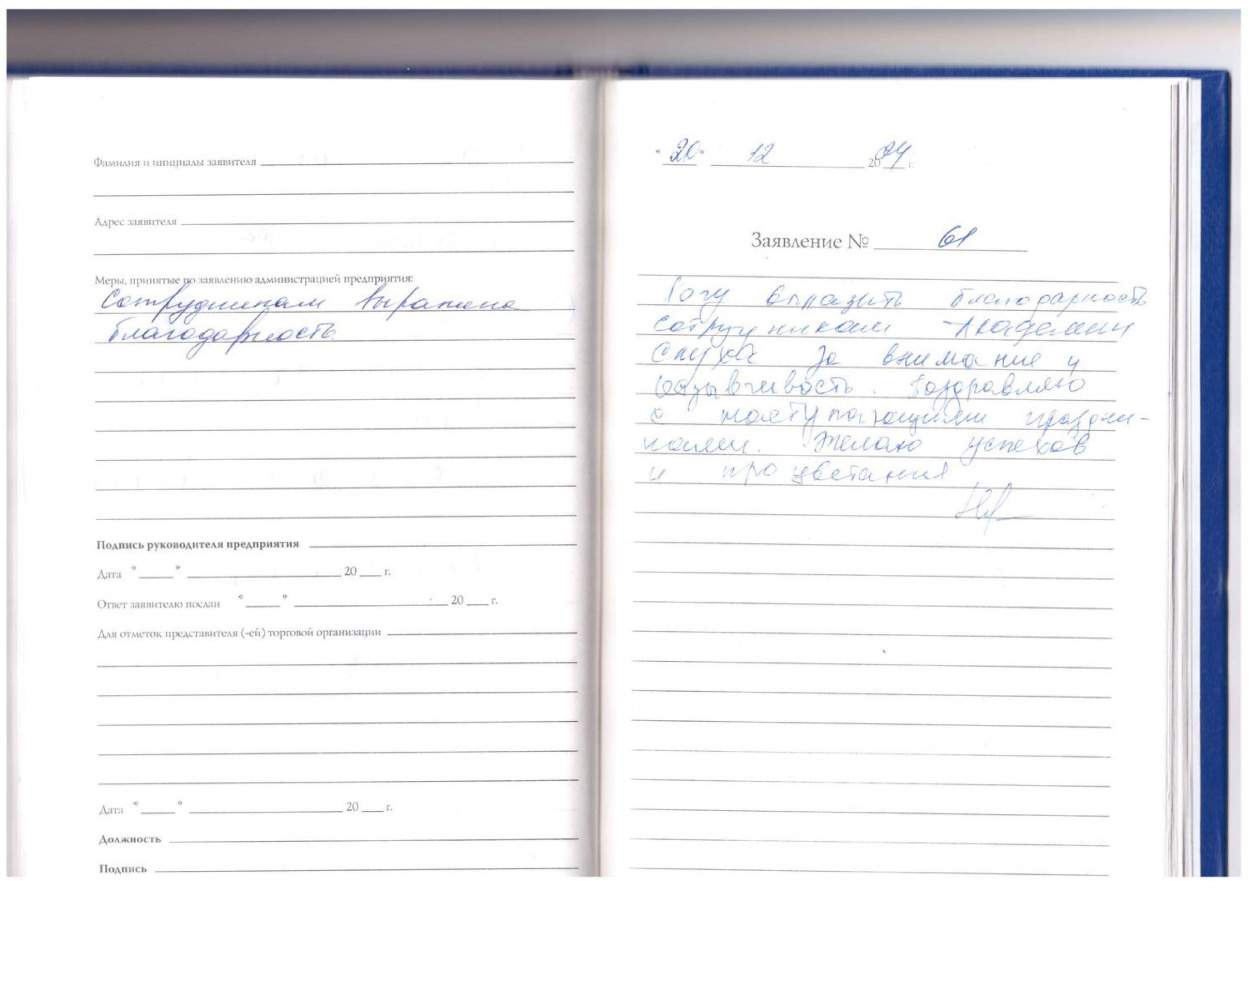 Фамилия и инициалы заявителя
Адрес заявителя
Меры, принятые по заявлению администрацией предприятия:
Сотрудникам выражена
благодарность
Подпись руководителя предприятия
Дата “ ” 20 г.
Ответ заявителю послан “ ” 20 г.
Для отметок представителя (-ей) торговой организации
Дата “ ” 20 г.
Должность
Подпись
“20” 12 2024 г.
Заявление № 61
Хочу выразить благодарность
сотрудникам Академии
Слуха за внимание и
отзывчивость. Поздравляю
с наступающими праздни-
ками. Желаю успехов
и процветания